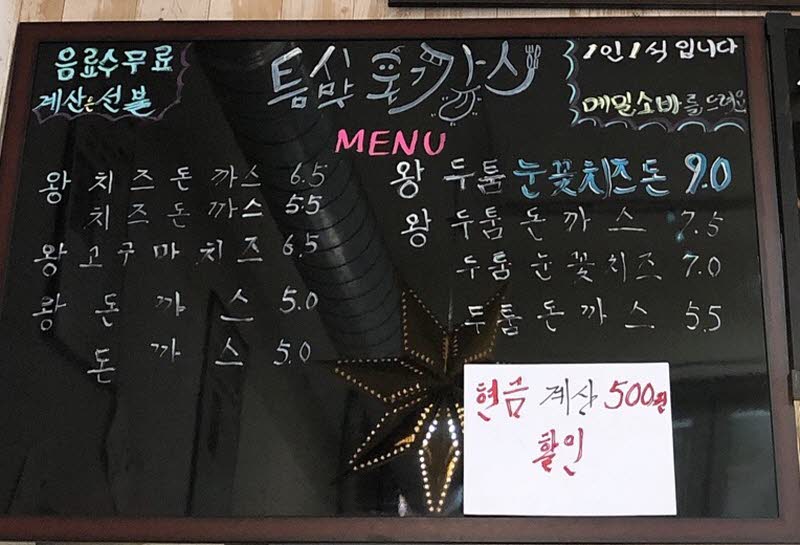 음료수무료
계산은선불
틈싀막 돈까스
1인 1식 입니다
메밀소바를 드려요
MENU
왕 치즈돈 까스 6.5
치즈돈까스 5.5
왕고구마치즈 6.5
왕 돈 까 스 5.0
돈 까 스 5.0
왕 두툼눈꽃치즈돈 9.0
왕 두툼돈까스 7.5
두툼눈꽃치즈 7.0
두툼돈까스 5.5
현금 계산 500원
할인